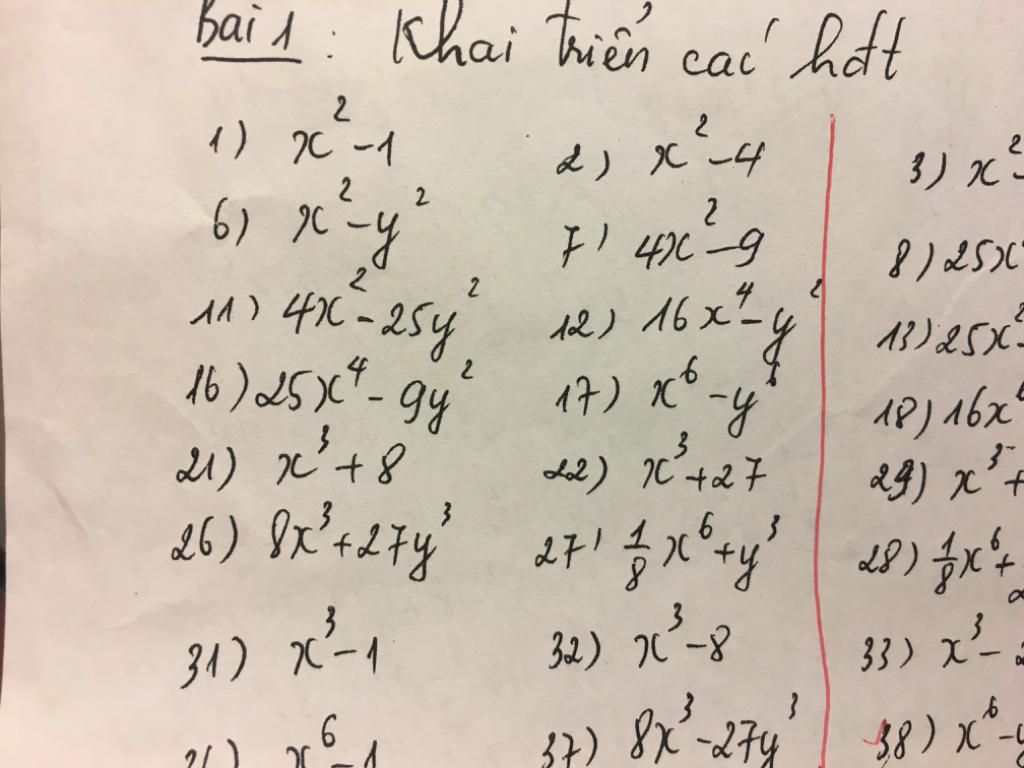 Bài 1 : Khai triển các hđt
1) x² - 1 2) x² - 4 3) x² -
6) x² - y² 7) 4x² - 9 8) 25x²
11) 4x² - 25y² 12) 16x⁴ - y² 13) 25x² -
16) 25x⁴ - 9y² 17) x⁶ - y⁶ 18) 16x⁶
21) x³ + 8 22) x³ + 27 29) x³ +
26) 8x³ + 27y³ 27) 1/8 x⁶ + y³ 28) 1/8 x⁶ +
31) x³ - 1 32) x³ - 8 33) x³ -
x⁶ - 1 37) 8x³ - 27y³ 38) x⁶ - y